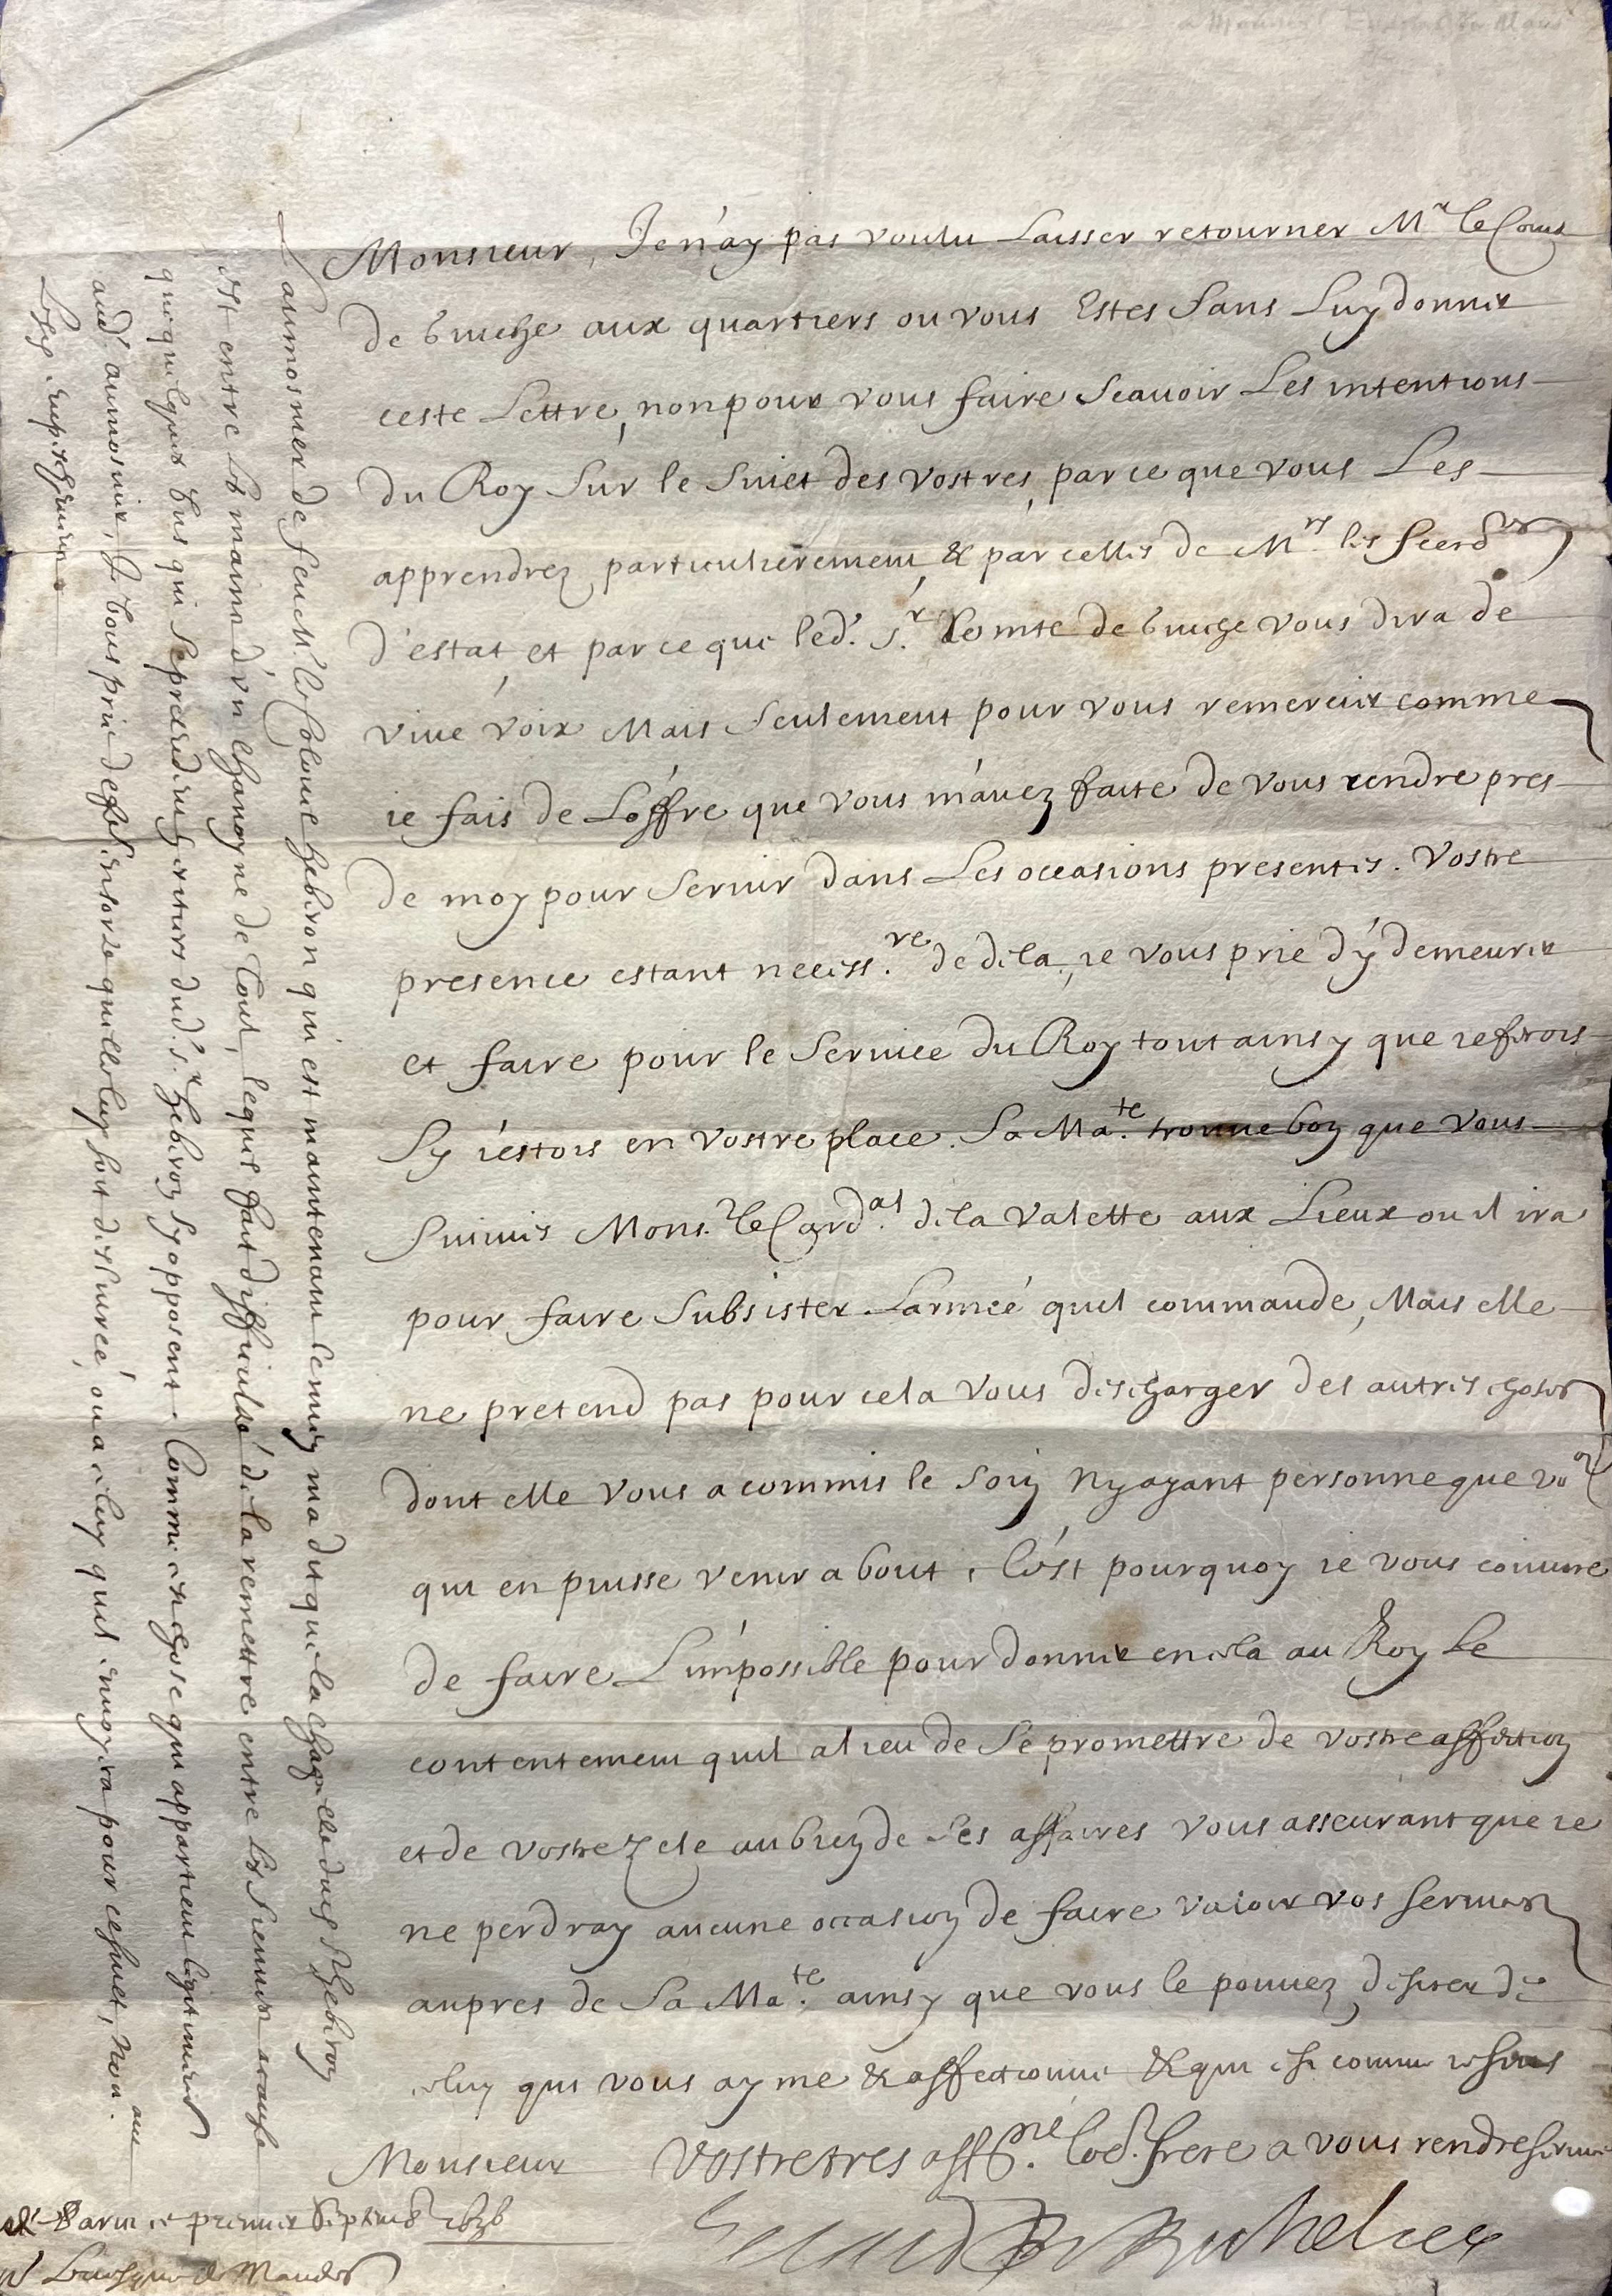 Monsieur, Je n'ay pas voulu Laisser retourner Mr le Comte
de Guiche aux quartiers ou vous Estes Sans Luy donner
ceste Lettre, non pour vous faire Scauoir Les intentions
du Roy Sur le Suiet des vostres, par ce que vous Les
apprendrez particulierement, & par celles de Mrs. les
d'estat, et par ce que led. Sr. Comte de Guiche vous dira de
viue voix Mais Seulement pour vous remercier comme
ie fais de L'offre que vous m'auez faite de vous rendre pres
de moy pour Seruir dans Les occasions presentes. Vostre
presence estant necess.re de dela, ie vous prie d'y demeurer
et faire pour le Seruice du Roy tout ainsy que ie ferois
Sy i'estois en vostre place. Sa Ma.te trouue bon que vous
Suiuiés Mons.r le Card.al de la Valette aux Lieux ou il ira
pour faire Subsister L'armée quil commande, Mais elle
ne pretend pas pour cela vous descharger des autres choses
dont elle vous a commis le Soin Ny ayant personne que vo9
qui en puisse venir a bout. C'est pourquoy ie vous coniure
de faire L'impossible pour donner en cela au Roy Le
contentement quil a lieu de Se promettre de vostre affection
et de vostre Zele au bien de Ses affaires Vous asseurant que ie
ne perdray aucune occasion de faire valoir vos seruices
aupres de Sa Ma.te ainsy que vous le pouuez desirer de
celuy qui vous ayme & affectionne & qui est comme ie suis
Monsieur Vostre tres aff.né frere a vous rendre seruice
Le Card. de Richelieu
De Paris ce premier Septemb. 1636
L'aumosnier de feu M. le Colonel hebron qui est maintenant m'a dit que la chapelle dud. Sr hebron
est entre les mains d'un chanoyne de Toul, lequel faict difficulté de la remettre entre les siennes a cause
que quelques uns qui Se pretendent heritiers dud. Sr. hebron Sy opposent. Comme cest chose qui appartient
aud. aumosnier, Je vous prie de faire en sorte quelle luy soit deliurée, ou a celuy quil enuoyra pour ce suiet,